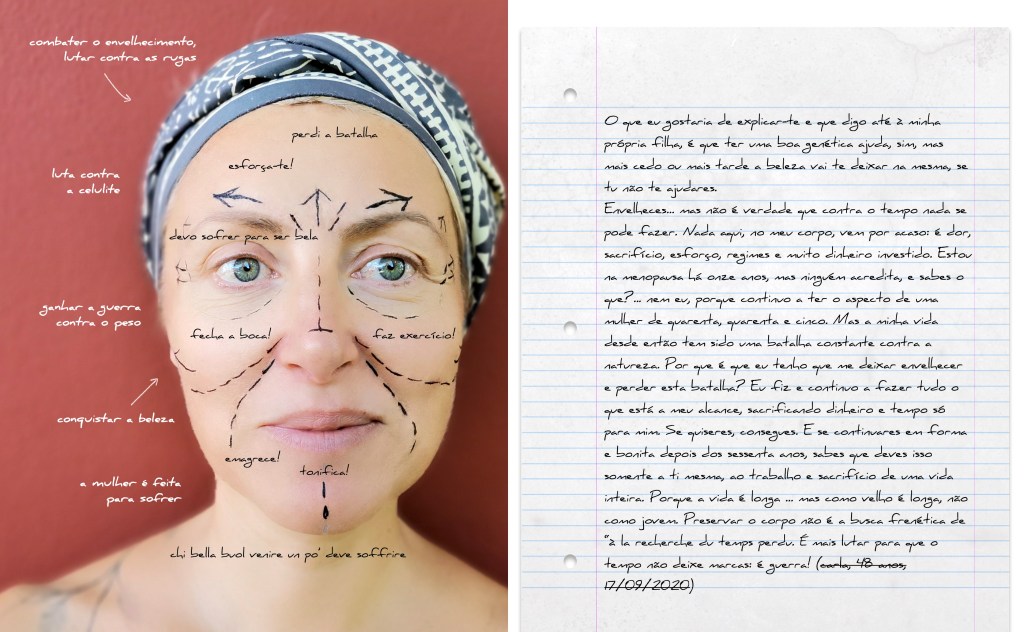 combater o envelhecimento,
lutar contra as rugas
perdi a batalha
esforça-te!
luta contra
a celulite
devo sofrer para ser bela
ganhar a guerra
contra o peso
fecha a boca!
faz exercício!
conquistar a beleza
emagrece!
tonifica!
a mulher é feita
para sofrer
chi bella vuol venire un po' deve soffrire
O que eu gostaria de explicar-te e que digo até à minha
própria filha, é que ter uma boa genética ajuda, sim, mas
mais cedo ou mais tarde a beleza vai te deixar na mesma, se
tu não te ajudares.
Envelheces... mas não é verdade que contra o tempo nada se
pode fazer. Nada aqui, no meu corpo, vem por acaso: é dor,
sacrifício, esforço, regimes e muito dinheiro investido. Estou
na menopausa há onze anos, mas ninguém acredita, e sabes o
que?... nem eu, porque continuo a ter o aspecto de uma
mulher de quarenta, quarenta e cinco. Mas a minha vida
desde então tem sido uma batalha constante contra a
natureza. Por que é que eu tenho que me deixar envelhecer
e perder esta batalha? Eu fiz e continuo a fazer tudo o
que está a meu alcance, sacrificando dinheiro e tempo só
para mim. Se quiseres, consegues. E se continuares em forma
e bonita depois dos sessenta anos, sabes que deves isso
somente a ti mesma, ao trabalho e sacrifício de uma vida
inteira. Porque a vida é longa ... mas como velho é longa, não
como jovem. Preservar o corpo não é a busca frenética de
"à la recherche du temps perdu. É mais lutar para que o
tempo não deixe marcas: é guerra! (carla, 48 anos,
17/09/2020)